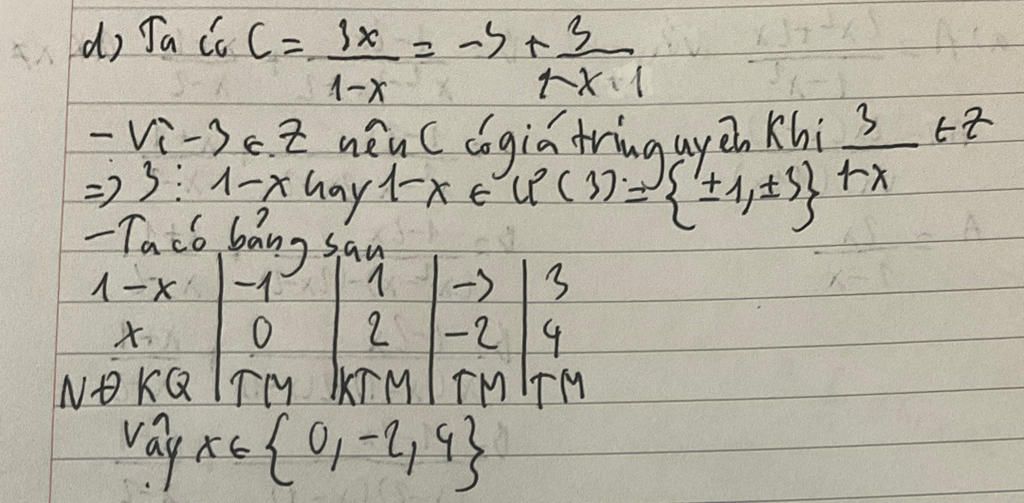 d) Ta có C = 3x/(1-x) = -3 + 3/(1-x)
- Vì -3 ∈ Z nên C có giá trị nguyên khi 3/(1-x) ∈ Z
=> 3 ⋮ 1-x hay 1-x ∈ Ư(3) = {±1, ±3}
- Ta có bảng sau
1-x | -1 | 1 | -3 | 3
x | 0 | 2 | -2 | 4
NĐKQ | TM | KTM | TM | TM
Vậy x ∈ {0, -2, 4}